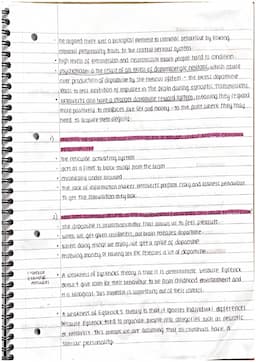 • he argued there was a biological element to criminal behaviour by linking
criminal personality traits to the central nervous system -
• high levels of extraversion and neuroticism mean people hard to condition.
• psychoticism is the result of an excess of dopaminergic neurons, which cause
over production of dopamine by the nervous system - the excess dopamine
leads to less inhibition of impulses in the brain during synaptic transmission.
• extraverts also have a stronger dopamine reward system, meaning they respond
more positively to behaviours like sex and money - to the point where they may
need to acquire them illegally.
1)
• the reticular activating system
• acts as a filter to block stimuli from the brain
• information under aroused
• the lack of information makes extraverts perform risky and illegal behaviour
to get the stimulation they lack.
2)
• the dopamine is neurotransmitter that allows us to feel pleasure.
• when we get given reinforcers, our brain releases dopamine
• when doing things we enjoy, we get a spike of dopamine
• receiving money or having sex etc releases a lot of dopamine.
• A weakness of Eysenck's theory is that it is deterministic because Eysenck
doesn't give room for their behaviour to be from childhood environment and
it is biological. This therefore is importantly out of their control.
• A weakness of Eysenck's theory is that it ignores individual differences
because Eysenck tries to organise people into categories such as neurotic
or introverts. This means we are assuming that all criminals have a
similar personality.